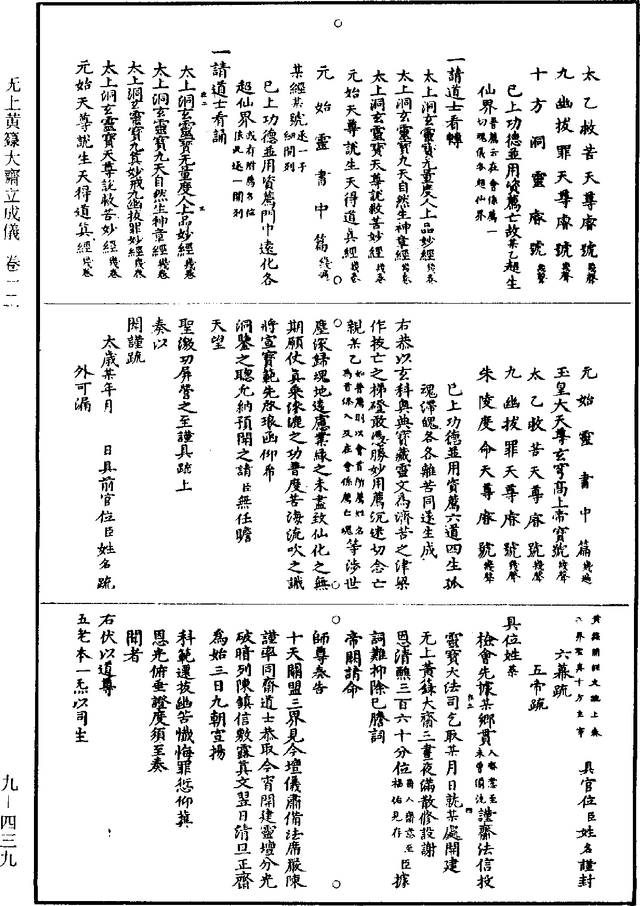 太乙救苦天尊睿號幾聲
九幽拔罪天尊睿號幾聲
十方洞靈睿號幾聲
已上功德並用資薦亡故某乙超生
仙界普薦云在會係薦一切魂儀各超仙界
一請道士看轉
太上洞玄靈寶無量度人上品妙經幾卷
太上洞玄靈寶九天自然生神章經幾卷
太上洞玄靈寶天尊說救苦妙經幾卷
元始天尊說生天得道真經幾卷
元始靈書中篇幾遍
某經某號逐一子細開列
已上功德並用資薦門中遠化各
超仙界或有附薦名位依此逐一開列
一請道士看誦
太上洞玄靈寶無量度人上品妙經幾卷
太上洞玄靈寶九天自然生神章經幾卷
太上洞玄靈寶九真妙戒九幽拔罪妙經幾卷
太上洞玄靈寶天尊說救苦妙經幾卷
元始天尊說生天得道真經幾卷
元始靈書中篇幾遍
玉皇大天尊玄穹高上帝寶號幾聲
太乙救苦天尊睿號幾聲
九幽拔罪天尊睿號幾聲
朱陵度命天尊睿號幾聲
已上功德並用資薦六道四生孤
魂滯魄各各離苦同遂生成
右恭以玄科奧典寶藏靈文為濟苦之津梁
作拔亡之梯磴敢憑勝妙用薦沉迷切念亡
親某乙如普薦則以會首所薦姓名為首係入及在會係薦亡魂等涉世
塵深歸魂地遠慮業緣之未盡致仙化之無
期願仗真乘濬滌之功普度苦海流吹之識
將宣寶範先啟琅函仰希
洞鑒之聰允納預開之請臣無任瞻
天望
聖激切屏營之至謹具疏上
奏以
聞謹疏
太歲某年月 日具前官位臣姓名疏
外可漏
黃籙開經文疏上奏
三界聖真十方主宰
六幕疏 具官位臣姓名謹封
五帝疏
具位姓某
檢會先據某鄉貫入齋意至未曾備洗謹齋法信投
靈寶大法司乞取某月日就某處開建
無上黃籙大齋三晝夜滿散修設謝
恩清醮三百六十分位爾入齋意至福佑見存臣據
詞難抑除已謄詞
帝闕請命
師尊奏告
十天關盟三界見今壇儀肅備法席嚴陳
謹率同齋道士恭取今宵開建靈壇分光
破暗列陳鎮信敷露真文翌日清旦正齋
為始三日九朝宣揚
科範遷拔幽苦懺悔罪愆仰冀
恩光俯垂證度須至奏
聞者
右伏以道尊
五老本一炁以司生
无上黃籙大齋立成儀 卷一二
九—四三九